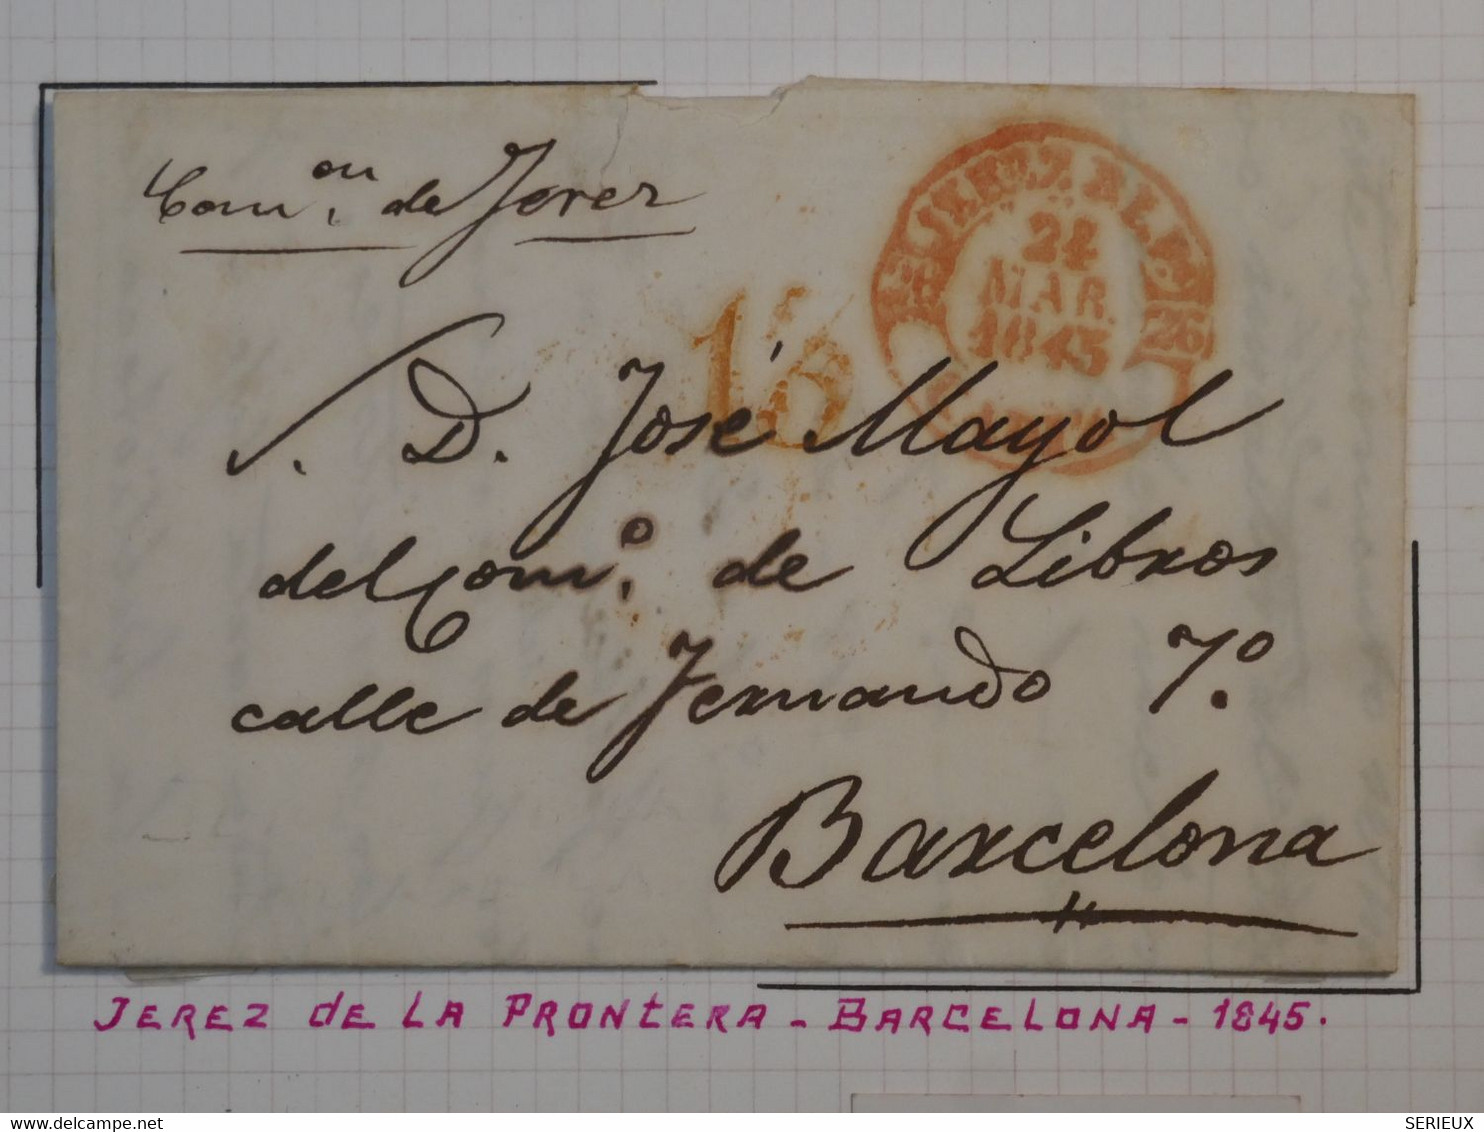 Com.ou de Jerez
JEREZ DE LA F.
24
MAR.
1845
26
1 R
S. D. José Mayol
del Com.º de Libros
calle de Fernando 7.º
Barcelona
JEREZ DE LA PRONTERA - BARCELONA - 1845.
delcampe.net
SERIEUX